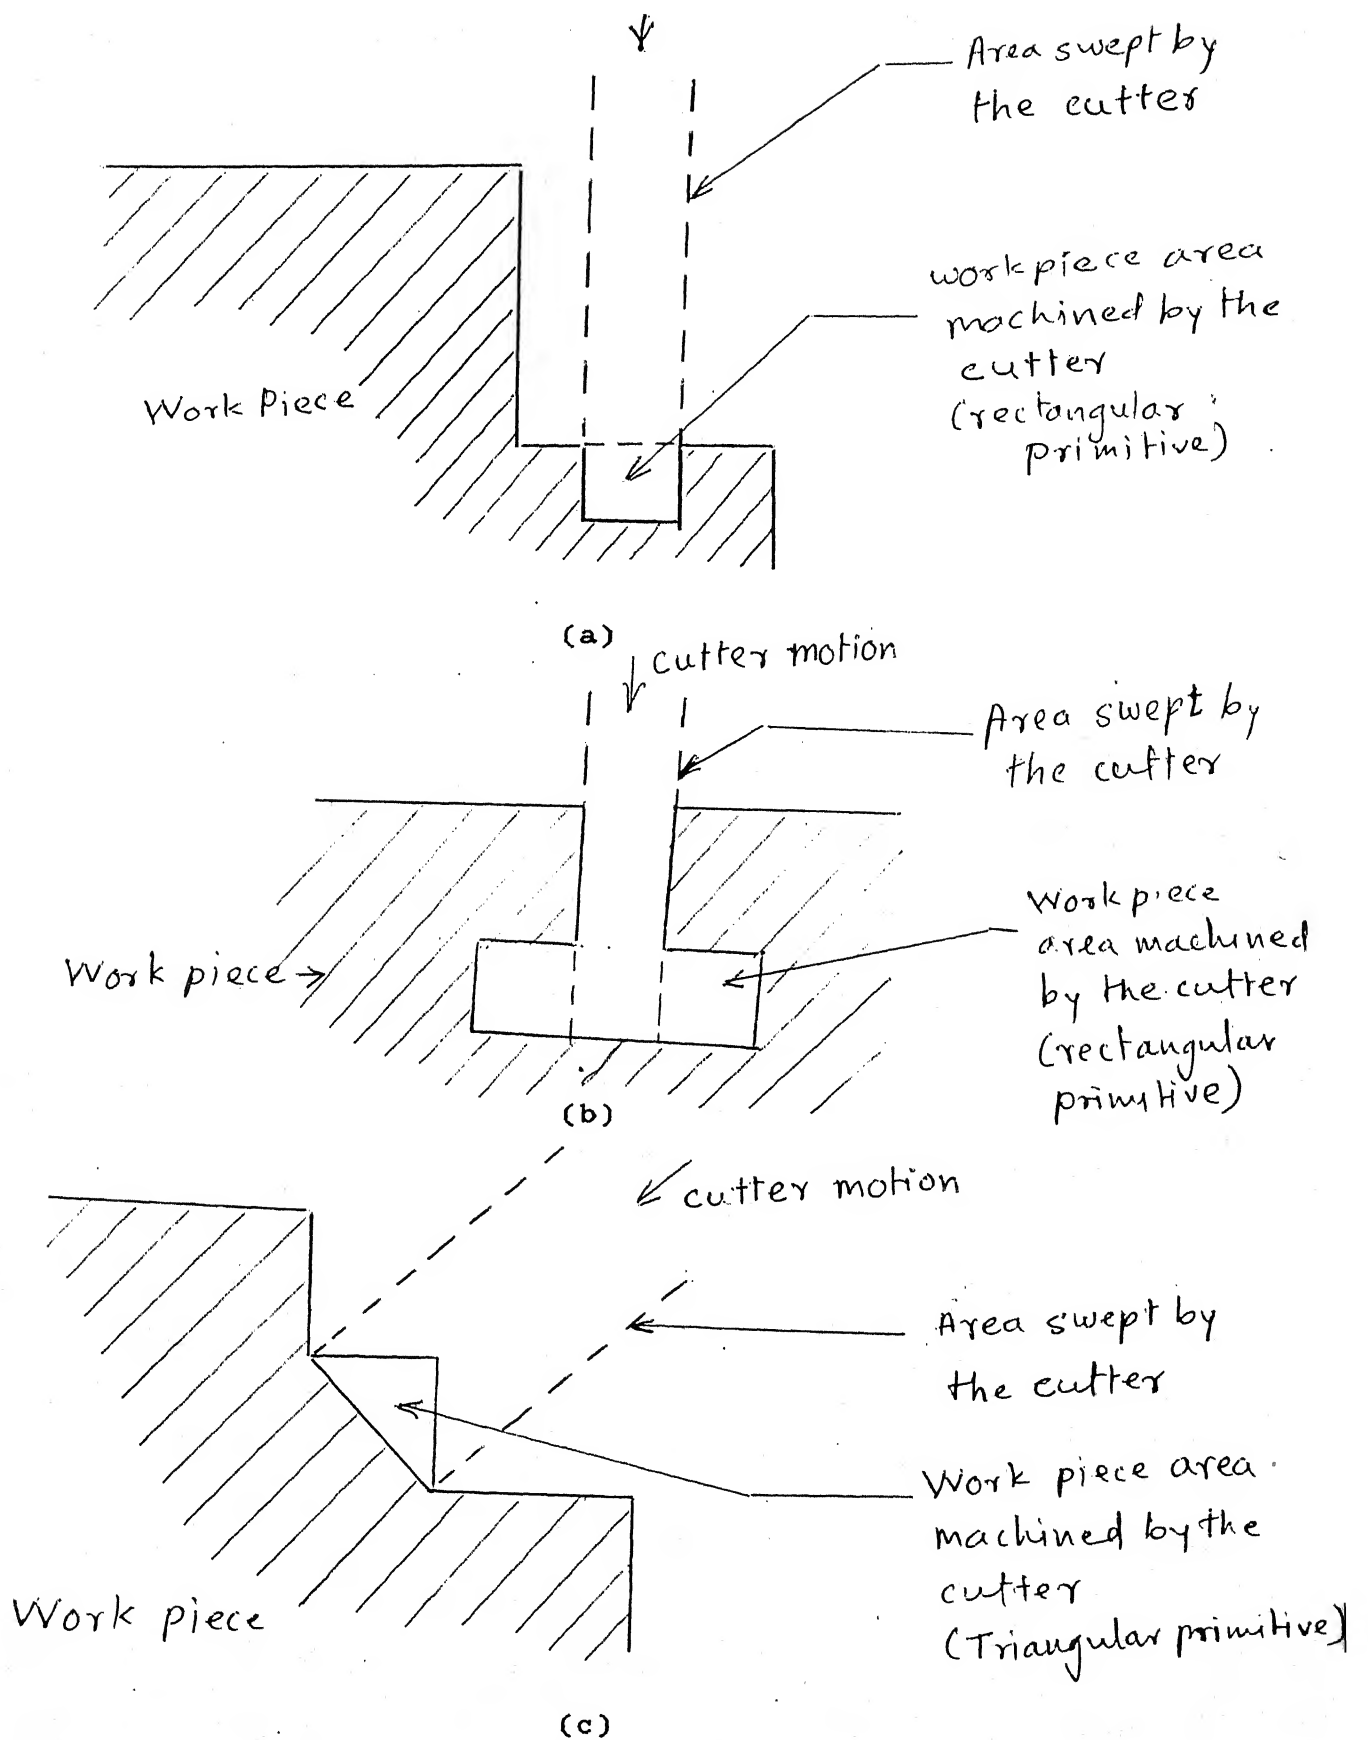 Area swept by
the cutter
workpiece area
machined by the
cutter
(rectangular
primitive)
Work Piece
(a)
cutter motion
Area swept by
the cutter
Work piece
area machined
by the cutter
(rectangular
primitive)
Work piece
(b)
cutter motion
Area swept by
the cutter
Work piece area
machined by the
cutter
(Triangular primitive)
Work piece
(c)